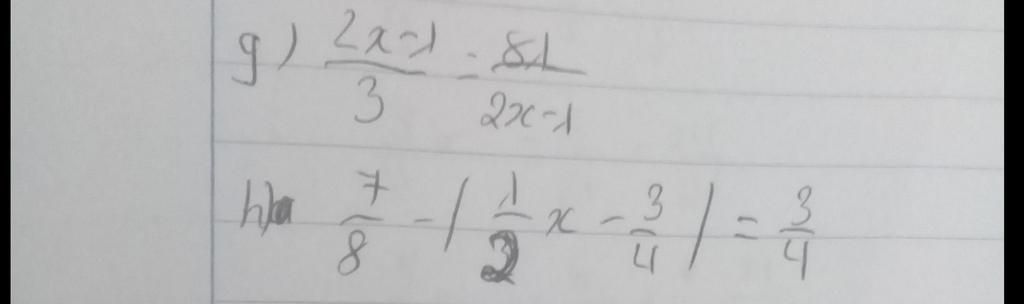 g) \frac{2x-1}{3} = \frac{81}{2x-1}
h) \frac{7}{8} - | \frac{1}{2} x - \frac{3}{4} | = \frac{3}{4}